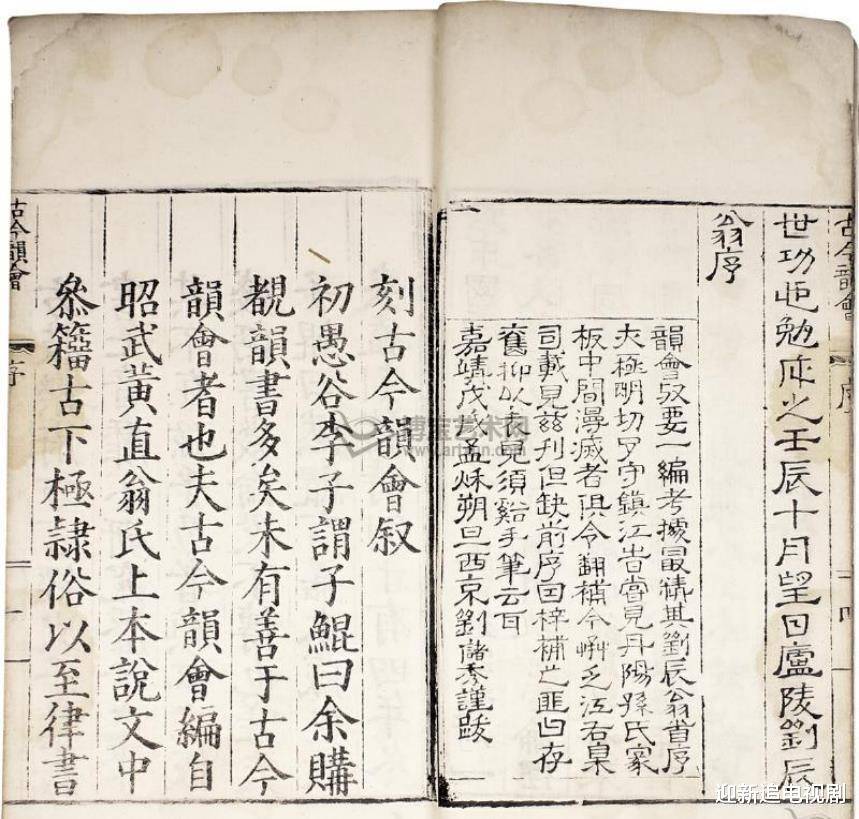 古今韻會
序
四
世功勉成之壬辰十月望日廬陵劉辰
翁序
韻會要一編考據最精其劉辰翁首序
極明切守鎮江昔嘗見丹陽孫氏家
板中間漫滅者俱令翻補今乏江右臬
司載見茲刊但缺前序因梓補之匪存
舊抑以表見須谿手筆云耳
嘉靖戊戌孟秋朔旦西京劉儲秀謹跋
刻古今韻會叙
初愚谷李子謂子鯤曰余購
覩韻書多矣未有善于古今
韻會者也夫古今韻會編自
昭武黃直翁氏上本說文中
叅籒古下極隷俗以至律書
古今韻會
序
一
博宝艺术网
www.artxun.com
迎新追电视剧